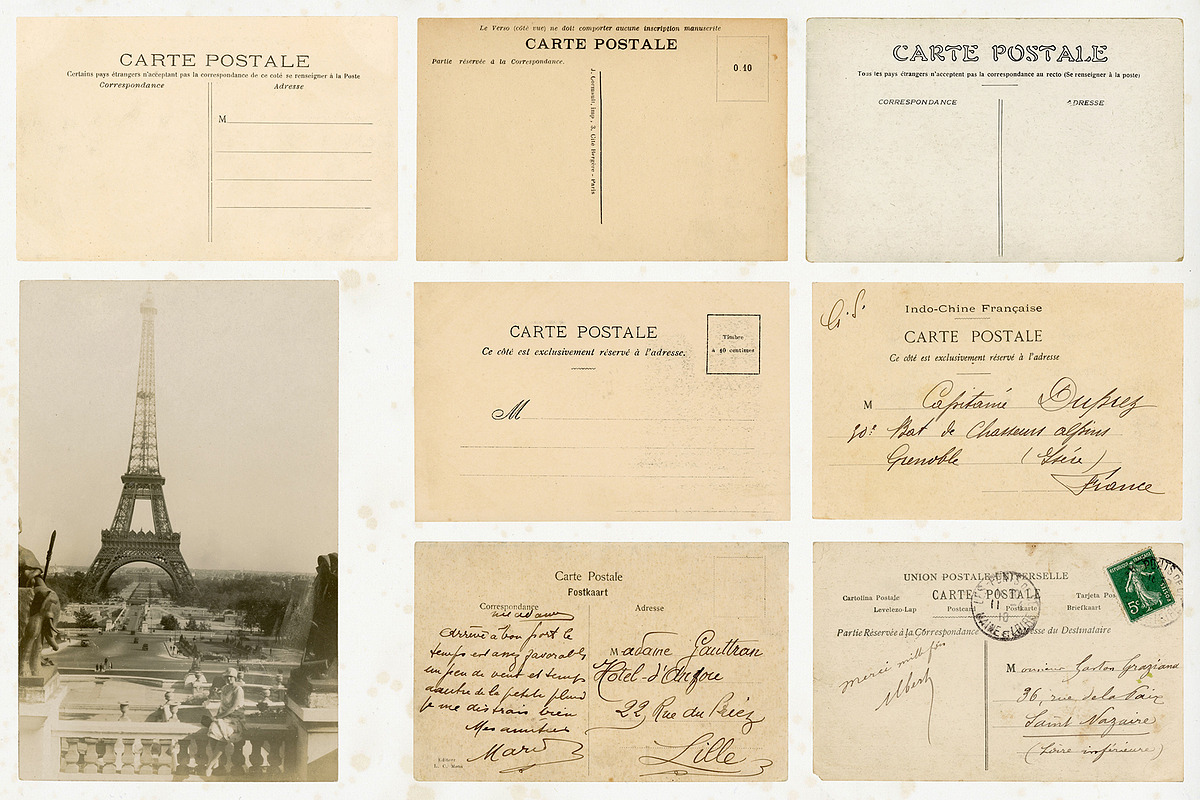 CARTE POSTALE
Certains pays étrangers n'acceptant pas la correspondance de ce coté se renseigner à la Poste
Correspondance
Adresse
M
Le Verso (côté vue) ne doit comporter aucune inscription manuscrite
CARTE POSTALE
Partie réservée à la Correspondance.
0.10
J. Cormault, imp., 3, Cité Bergère - Paris
CARTE POSTALE
Tous les pays étrangers n'acceptent pas la correspondance au recto (Se renseigner à la poste)
CORRESPONDANCE
ADRESSE
CARTE POSTALE
Ce côté est exclusivement réservé à l'adresse.
Timbre
à 10 centimes
M
G. S.
Indo-Chine Française
CARTE POSTALE
Ce côté est exclusivement réservé à l'adresse
M Capitaine Duprez
30e Bat de Chasseurs alpins
Grenoble (Isère)
France
Carte Postale
Postkaart
Correspondance
Adresse
Madame
Arrivé a bon port le
temps est assez favorable
un peu de vent et temps
autre de la petite pluie
je me distrais bien
Mes amitiés
Marc
Editeur
Madame Gauttran
Hôtel-d'
22 Rue du
Lille
UNION POSTALE UNIVERSELLE
CARTE POSTALE
Cartolina Postale
Tarjeta Pos
Levelezo-Lap
Postcard
Postkarte
Briefkaart
Partie Réservée à la Correspondance
sse du Destinataire
REPUBLIQUE FRANÇAISE
POSTES
5c
11
merci mille fois
Albert
Monsieur Gaston Graziana
36, rue de la Paix
Saint Nazaire
(Loire inférieure)